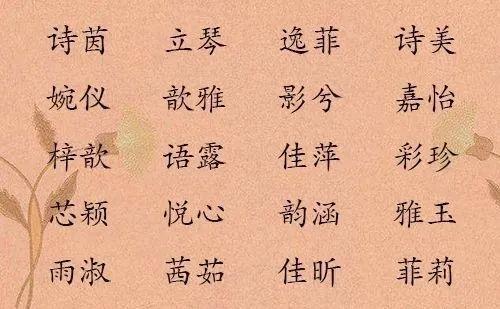 诗茵 立琴 逸菲 诗美
婉仪 歆雅 影兮 嘉怡
梓歆 语露 佳萍 彩珍
芯颖 悦心 韵涵 雅玉
雨淑 茜茹 佳昕 菲莉